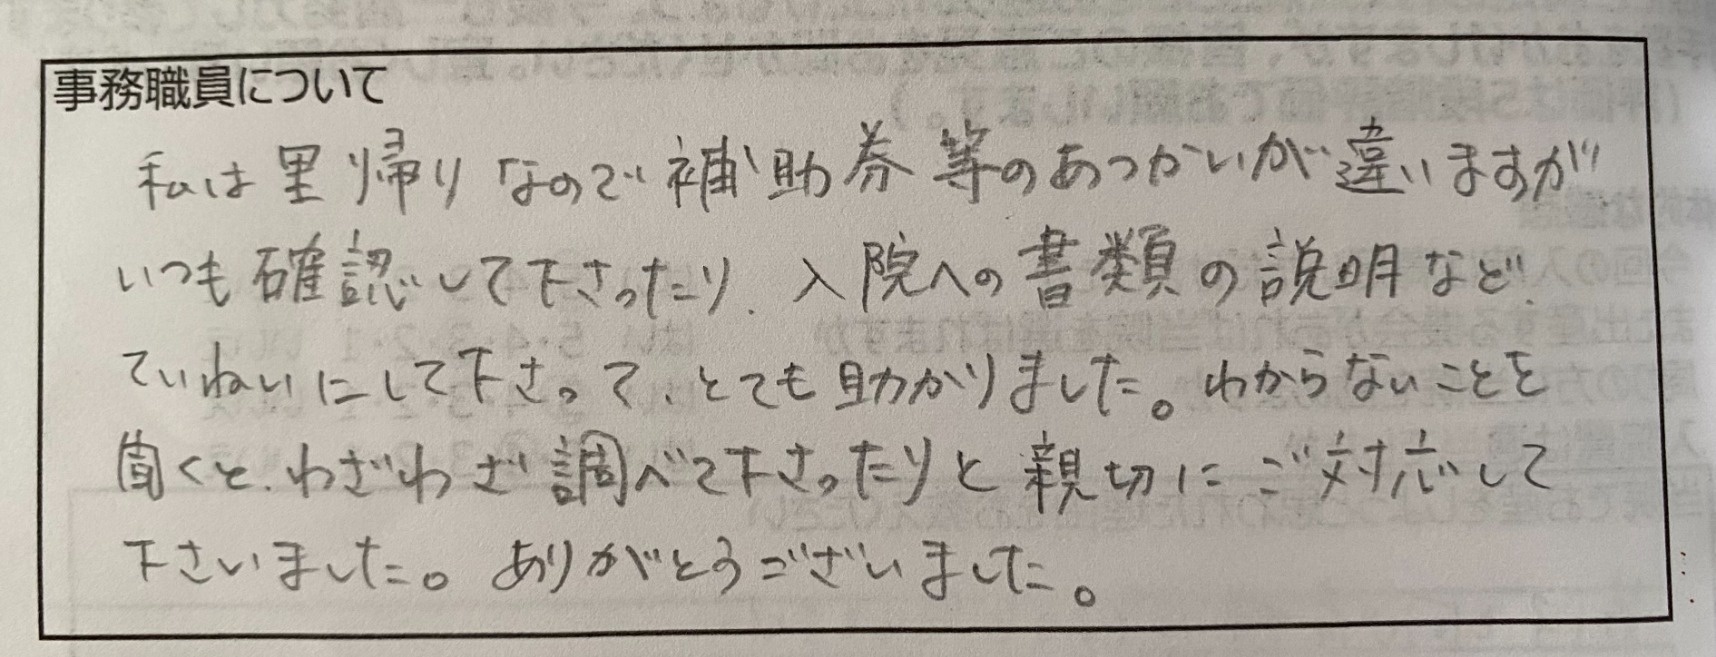 事務職員について
私は里帰りなので補助券等のあつかいが違いますが
いつも確認して下さったり、入院への書類の説明など、
ていねいにして下さって、とても助かりました。わからないことを
聞くと、わざわざ調べて下さったりと親切にご対応して
下さいました。ありがとうございました。